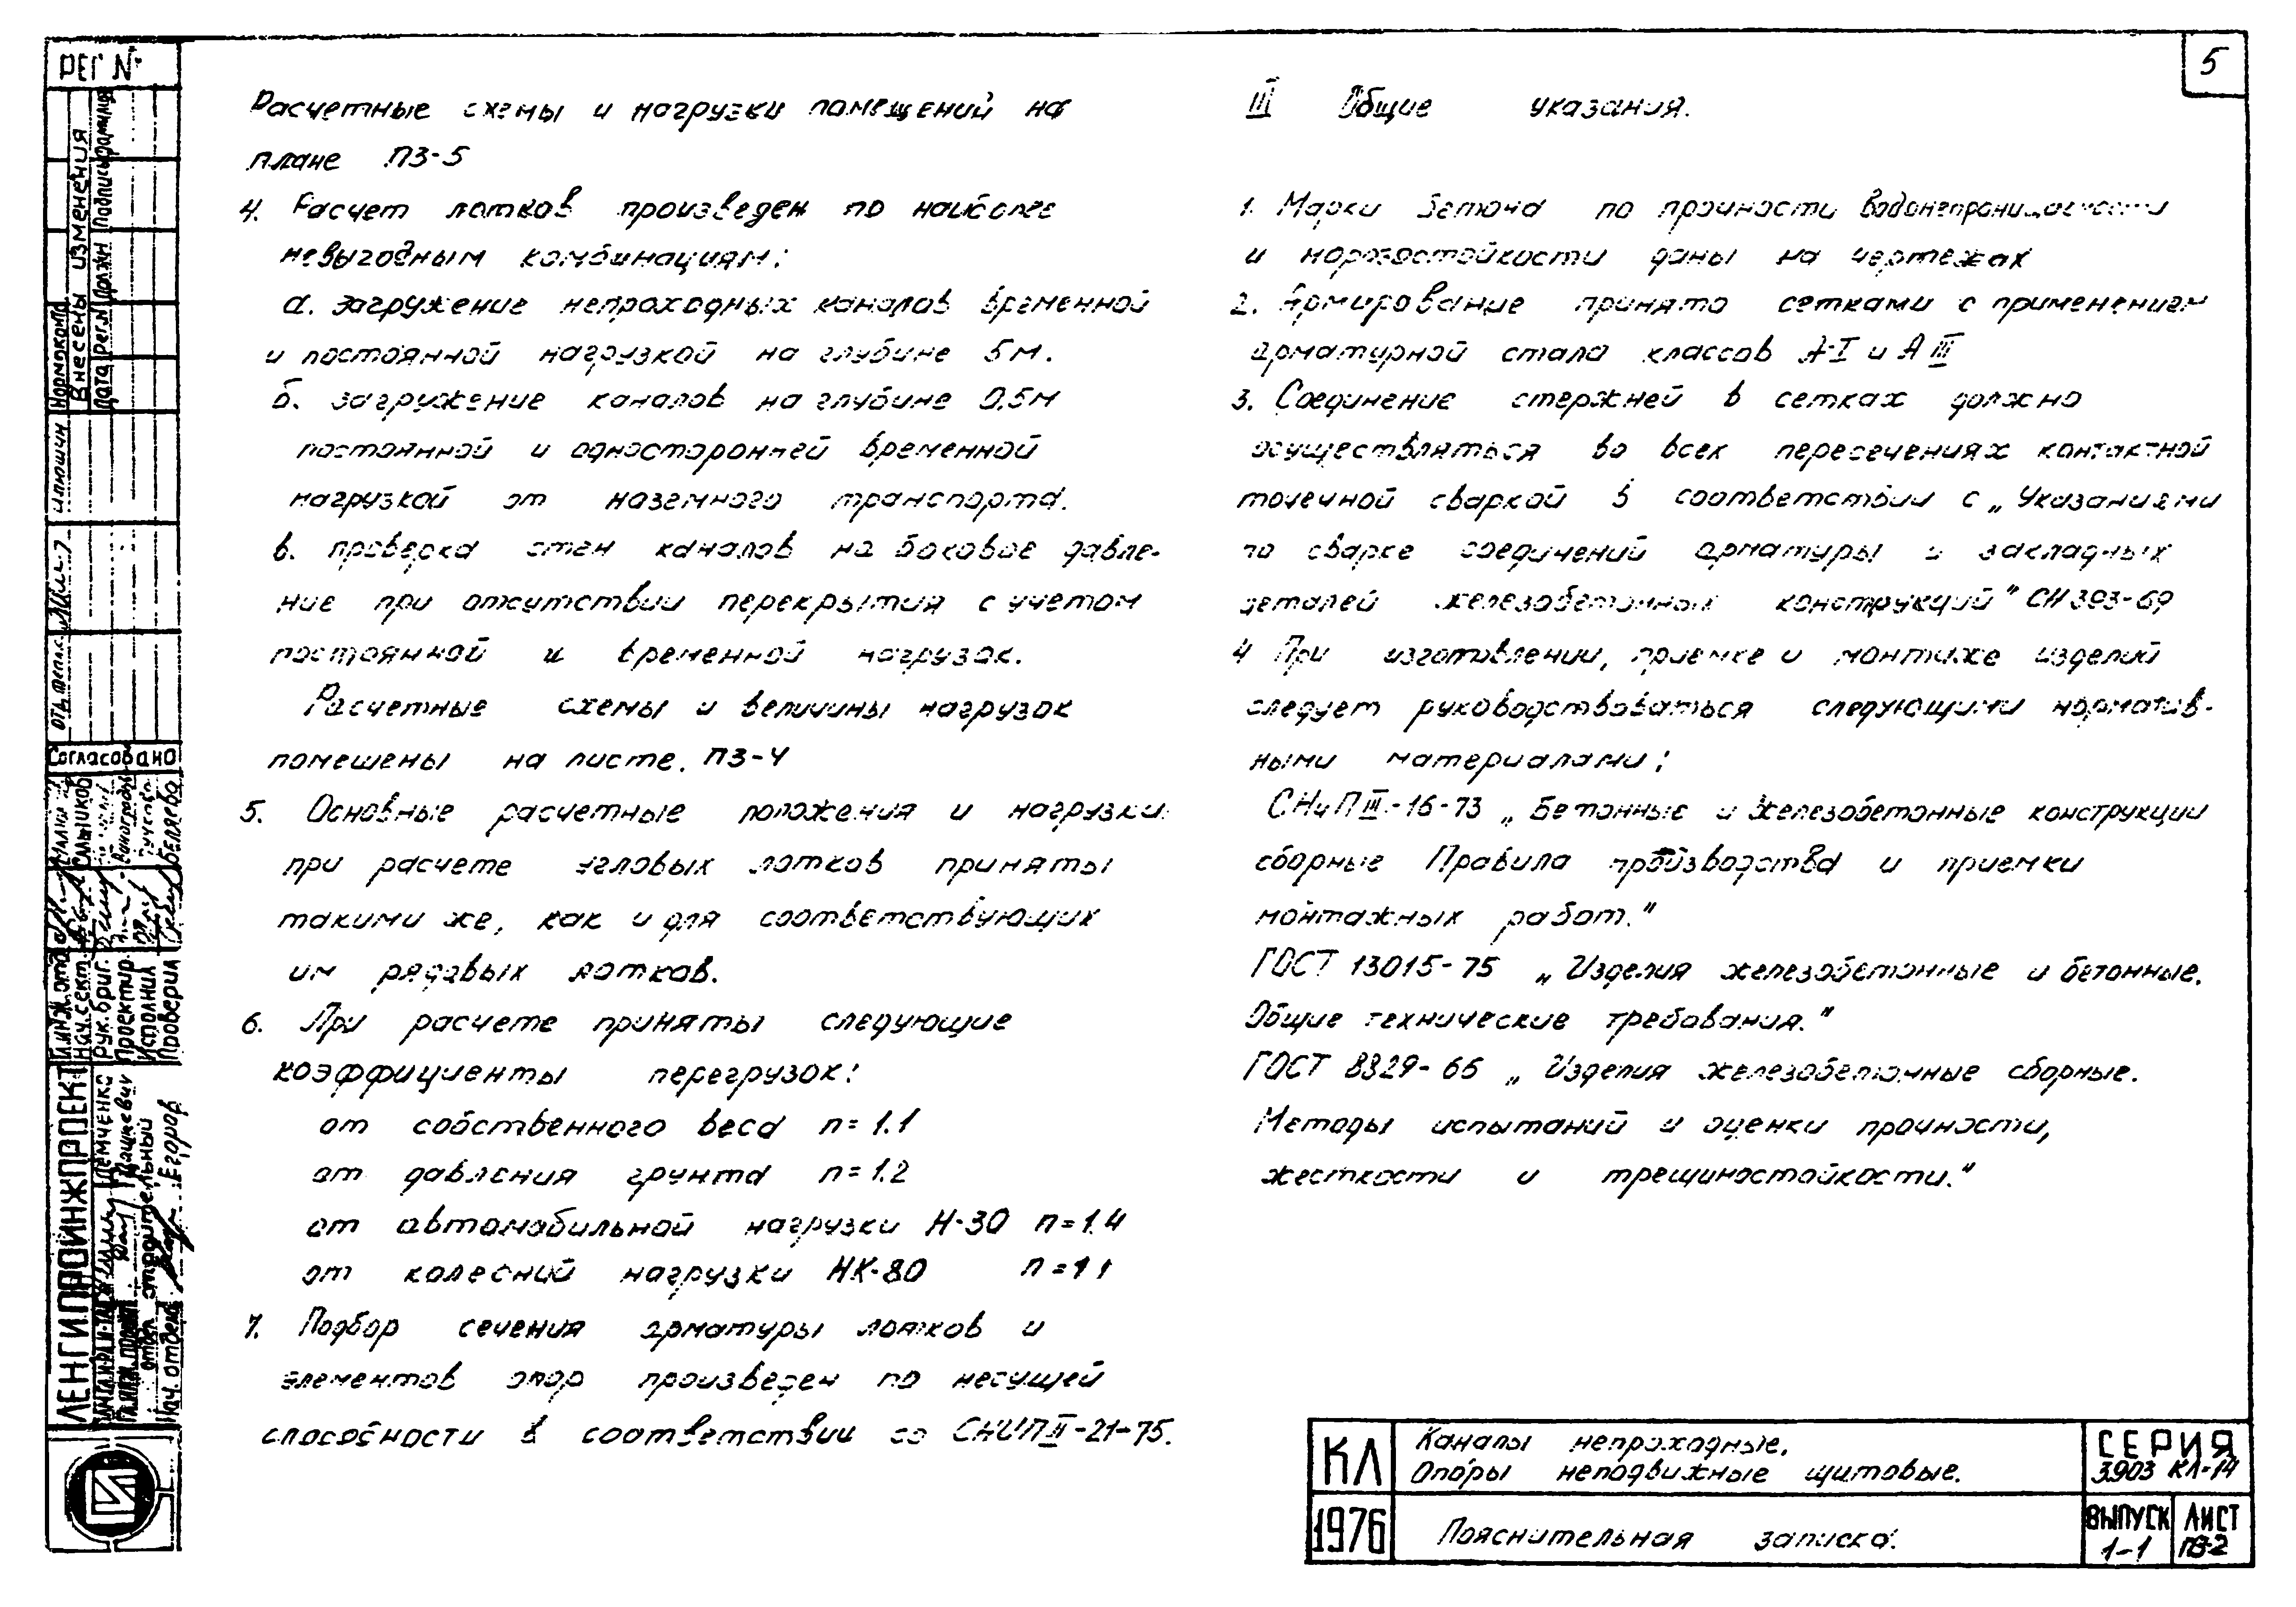 5
Расчетные схемы и нагрузки помещений на
плане ПЗ-5
4. Расчет лотков произведен по наиболее
невыгодным комбинациям:
а. загружение непроходных каналов временной
и постоянной нагрузкой на глубине 5м.
б. загружение каналов на глубине 0.5м
постоянной и односторонней временной
нагрузкой от наземного транспорта.
в. проверка стен каналов на боковое давле-
ние при отсутствии перекрытия с учетом
постоянной и временной нагрузок.
Расчетные схемы и величины нагрузок
помещены на листе. ПЗ-4
5. Основные расчетные положения и нагрузки
при расчете угловых лотков приняты
такими же, как и для соответствующих
им рядовых лотков.
6. При расчете приняты следующие
коэффициенты перегрузок:
от собственного веса n=1.1
от давления грунта n=1.2
от автомобильной нагрузки Н-30 n=1.4
от колесний нагрузки НК-80 n=1 1
7. Подбор сечения арматуры лотков и
элементов опор произведен по несущей
способности в соответствии со СНИП II-21-75.
III Общие указания.
1. Марки бетона по прочности водонепроницаемости
и морозостойкости даны на чертежах
2. Армирование принято сетками с применением
арматурной стала классов А-I и А III
3. Соединение стержней в сетках должно
осуществляться во всех пересечениях контактной
точечной сваркой в соответствии с „Указаниями
по сварке соединений арматуры и закладных
деталей железобетонных конструкций" СН 393-69
4 При изготовлении, приемке и монтаже изделий
следует руководствоваться следующими норматив-
ными материалами:
СНиП III-16-73 „Бетонные и железобетонные конструкции
сборные Правила производства и приемки
монтажных работ."
ГОСТ 13015-75 „Изделия железобетонные и бетонные.
Общие технические требования."
ГОСТ 8829-66 „Изделия железобетонные сборные.
Методы испытаний и оценки прочности,
жесткости и трещиностойкости."
КЛ
Каналы непроходные.
Опоры неподвижные щитовые.
СЕРИЯ
3.903 КЛ-14
1976
Пояснительная записка.
ВЫПУСК
1-1
ЛИСТ
ПЗ-2
РЕГ №
Внесены изменения
Дата Рег.N Должн Подпись Фамилия
Нормоконтр
Согласовано
Гл.инж.отд
Нач.сект.
Рук.бриг.
Проектир.
Исполнил
Проверил Беляева
ЛЕНГИПРОИНЖПРОЕКТ
Нач. отдела Егоров